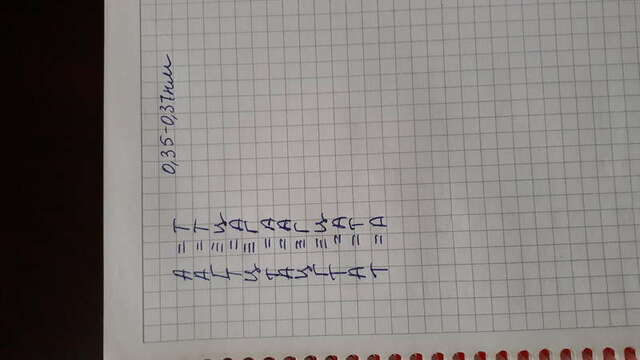 А = Т 0,35-0,37нм
А = Т
Г ≡ Ц
Т = А
Ц ≡ Г
Т = А
А = А
Ц ≡ Г
Г ≡ Ц
Т = А
А = Т
Т = А